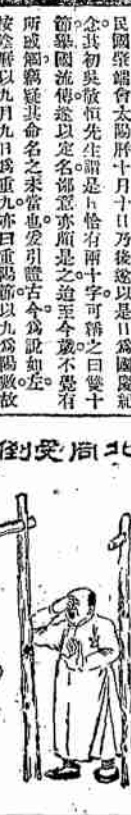 民國發端會太陽曆十月十日乃後遂以是日爲國慶紀
念其初吳敬恒先生謂是日恰有兩十字可稱之曰雙十
節舉國流傳遂以定名鄙意亦頗是之迨至今歲不覺有
所感觸竊疑其命名之未當也爰引證古今爲說如左
按陰曆以九月九日爲重九亦曰重陽節以九爲陽數故
北同受倒